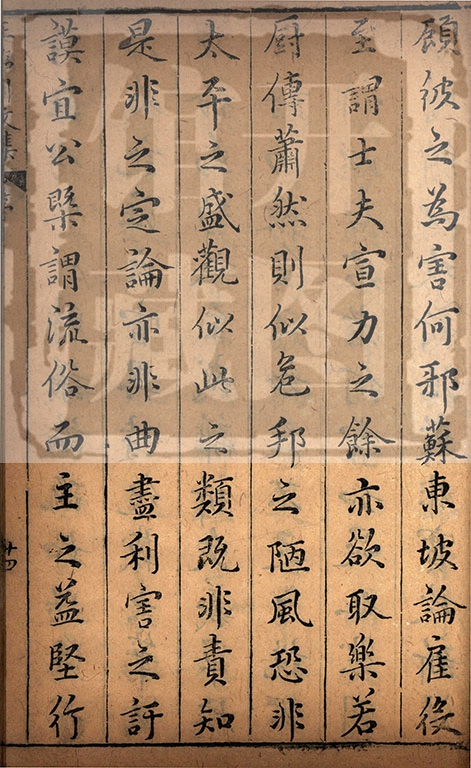 顧彼之為害何邪蘇東坡論雇役
至謂士夫宣力之餘亦欲取樂若
厨傳蕭然則似危邦之陋風恐非
太平之盛觀似此之類既非責知
是非之定論亦非曲盡利害之訏
謨宜公槩謂流俗而主之益堅行